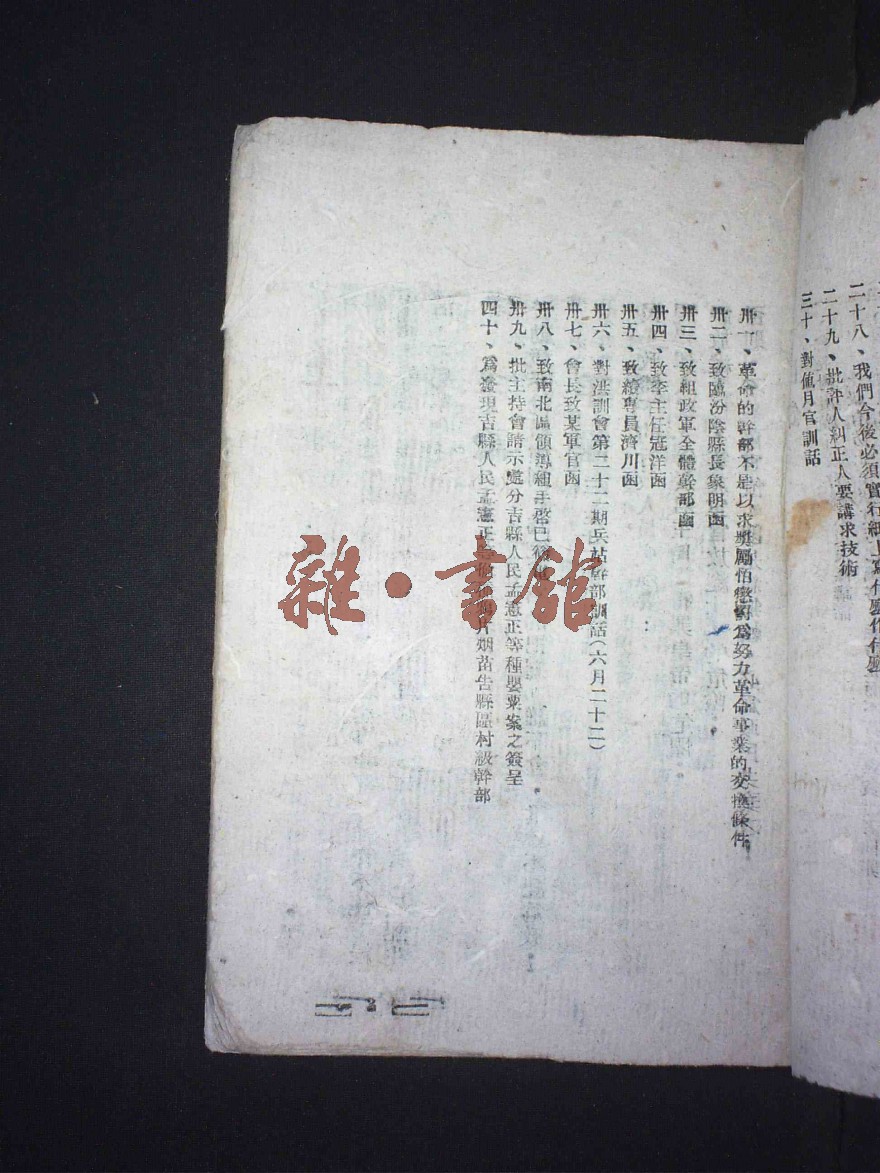 二十八、我們今後必須實行紙上寫什麽作什麽
二十九、批評人糾正人要講求技術
三十、對值月官訓話
卅一、革命的幹部不是以求獎勵怕懲罰為努力革命事業的交換條件
卅二、致臨汾陰縣長象明函
卅三、致組政軍全體幹部函
卅四、致李主任冠洋函
卅五、致續專員濟川函
卅六、對洪訓會第二十二期兵站幹部訓話(六月二十二)
卅七、會長致某軍官函
卅八、致南北區領導組手啓已
卅九、批主持會請示處分吉縣人民孟憲正等種罌粟案之簽呈
四十、爲發現吉縣人民孟憲正 烟苗告縣區村級幹部
雜·書館